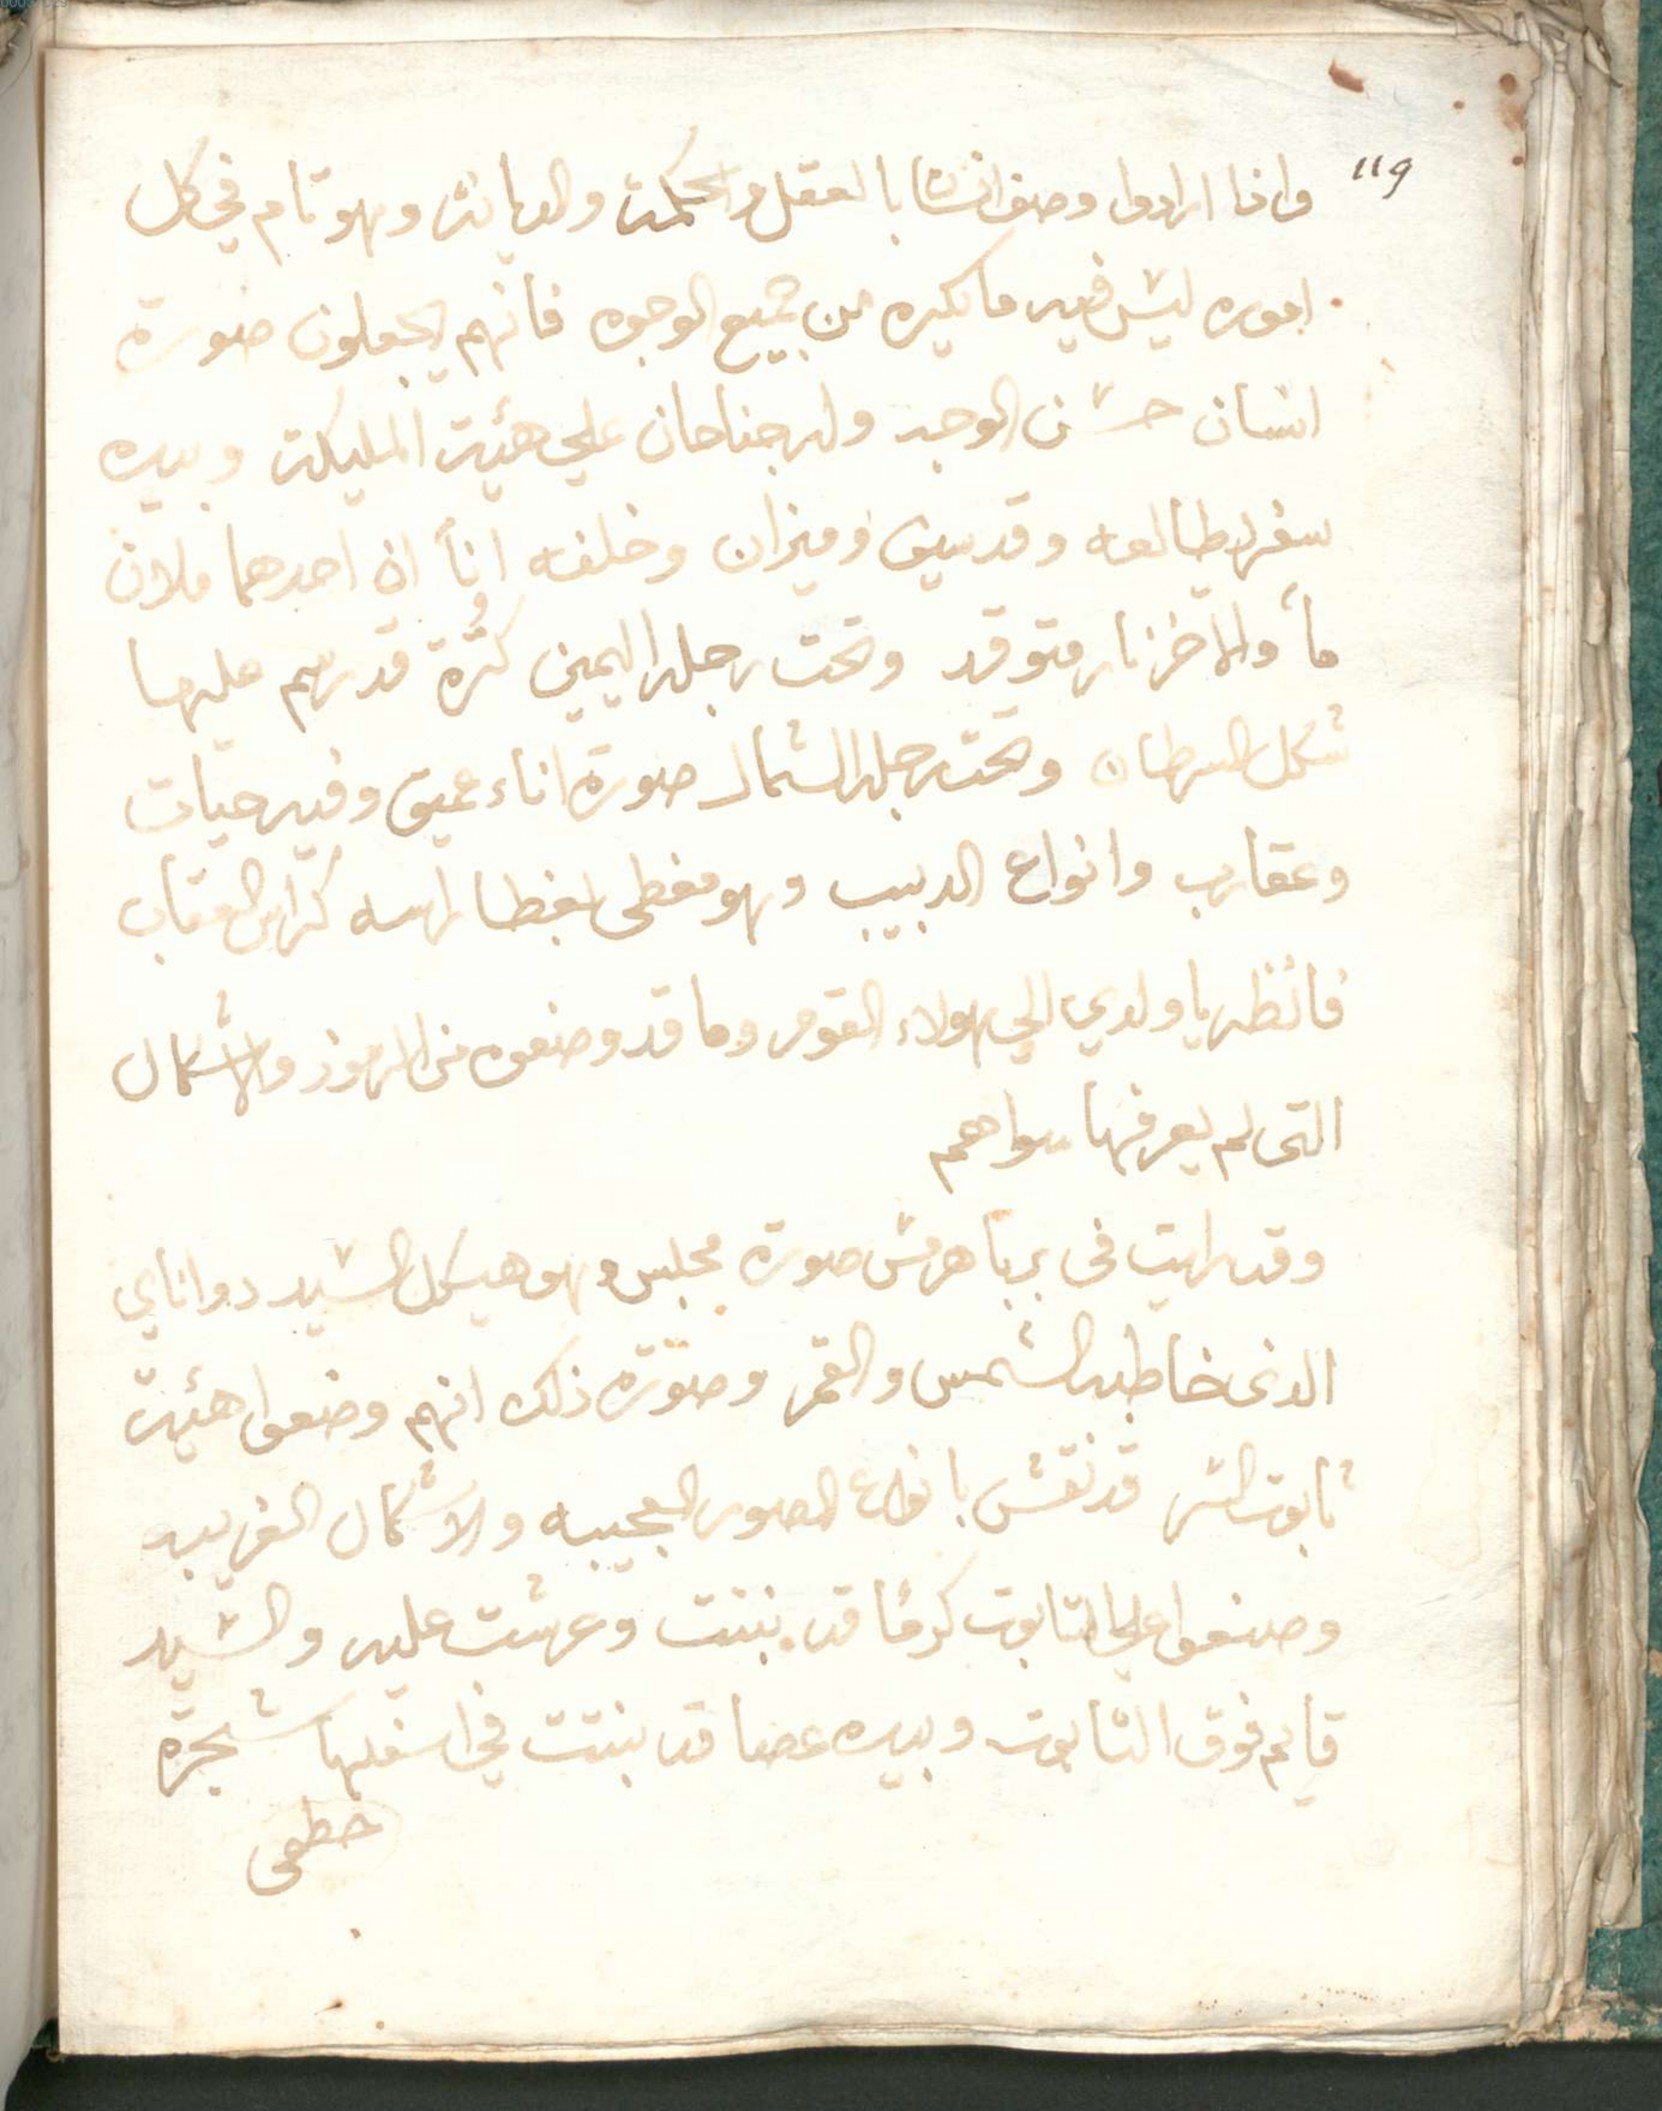 119
واذا ارادوا وصف انسانا بالعقل والحكمة والديانة وهو تام في كل
اموره ليس فيه ما يكره من جميع الوجوه فانهم يجعلون صورة
انسان حسن الوجه وله جناحان علي هئية المليكة وبيده
سفر يطالعه وقد سيق وميزان وخلفه اناأ ان احدهما ملان
ماء والاخر نار متوقد وتحت رجله اليمين كرة قد رسم عليها
شكل السرطان وتحت رجله الشمال صورة اناء عميق وفيه حيات
وعقارب وانواع الدبيب وهو مغطى بغطا راسه كراس العقاب
فانظر يا ولدي الي هولاء القوم وما قد وضعوه من الرموز والاشكال
التى لم يعرفها سواهم
وقد رايت فى بربا هرمس صورة مجلس وهو هيكل السيد دواناي
الذى خاطبه الشمس والقمر وصورة ذلك انهم وضعوا هئية
تابوت السر قد نقش بانواع الصور العجيبه والاشكال الغريبه
وصنعوا علي التابوت كرمًا قد نبتت وعرشت عليه والسيد
قايم فوق التابوت وبيده عصا قد نبتت في اسفلها شجرة
خطمى